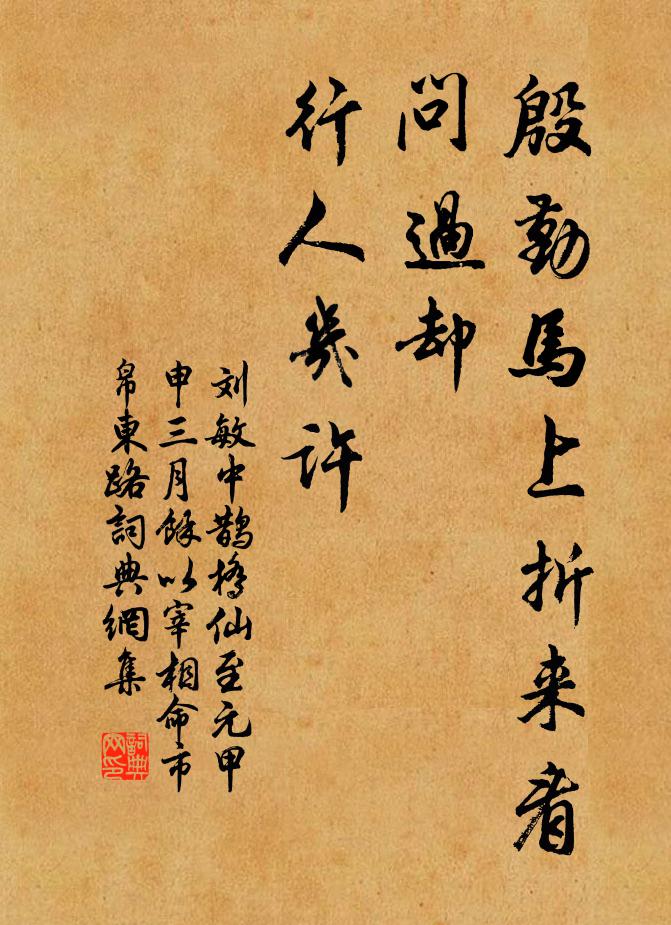 殷勤馬上折来看
問過却
行人幾許
刘敏中鵲橋仙至元甲
申三月餘以宰相命市
帛東路詞典網集
詞典
网印